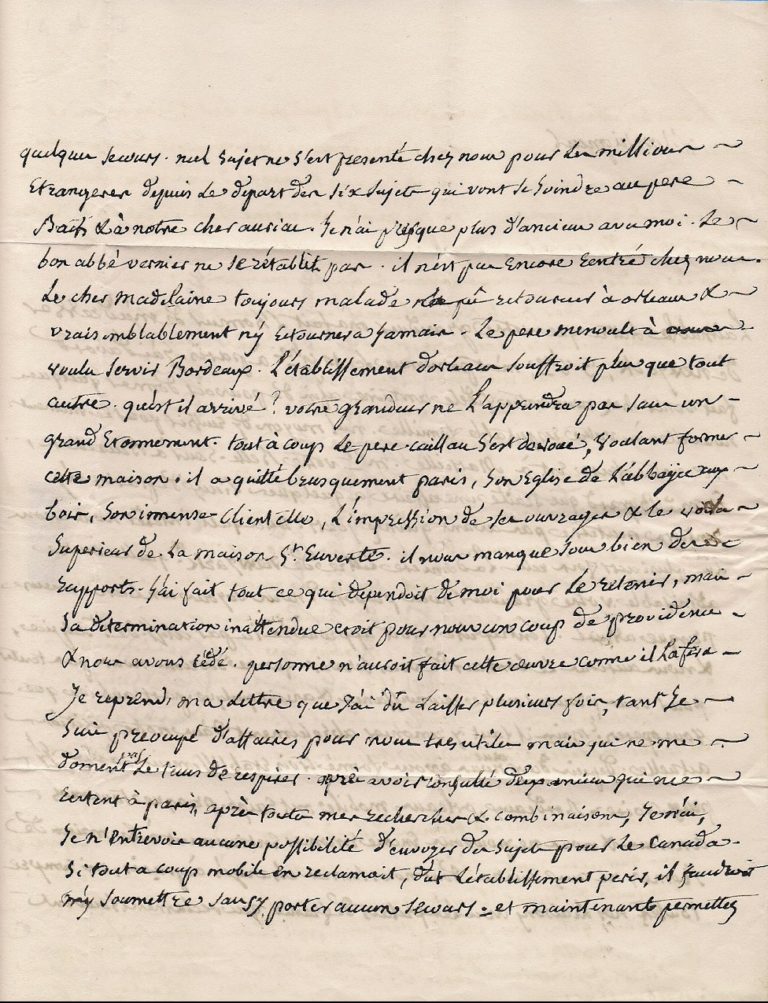 quelques secours. nul sujet ne s'est presenté chez nous pour les missions
Etrangeres depuis le depart des six sujets qui vont se joindre au pere
Bach & à notre cher auriac. Je n'ai presque plus d'anciens avec moi. Le
bon abbé vernier ne se rétablit pas. il n'est pas encore rentré chez nous.
Le cher Madelaine toujours malade n'a pû retourner à orleans &
vraisemblablement n'y retournera jamais. Le pere menoult à
voulu servir Bordeaux. L'établissement d'orleans souffroit plus que tout
autre. qu'est il arrivé? votre grandeur ne L'apprendra pas sans un
grand Etonnement. tout à coup Le pere caillau s'est devoué, voulant former
cette maison. il a quitté brusquement paris, son Eglise de L'abbaye aux
bois, son immense Clientelle, L'impression de ses ouvrages & le voila
Superieur de La maison St. Euverte. il nous manque sous bien des
rapports. j'ai fait tout ce qui dependoit de moi pour Le retenir, mais
sa determination inattendue etoit pour nous un coup de providence
& nous avons cédé. personne n'auroit fait cette œuvre comme il La fera
Je reprends ma Lettre que j'ai dû Laisser plusieurs fois, tant je
suis preocupé d'affaires pour nous tres utiles mais qui ne me
donnent pas Le tems de respirer. après avoir consulté deux anciens qui me
restent à paris, après toutes mes recherches & combinaisons,
Je n'entrevois aucune possibilité d'envoyer des sujets pour Le Canada.
Si tout a coup mobile en reclamait, dût L'établissement perir, il faudroit
m'y soumettre sans y porter aucun secours. et maintenant permettez